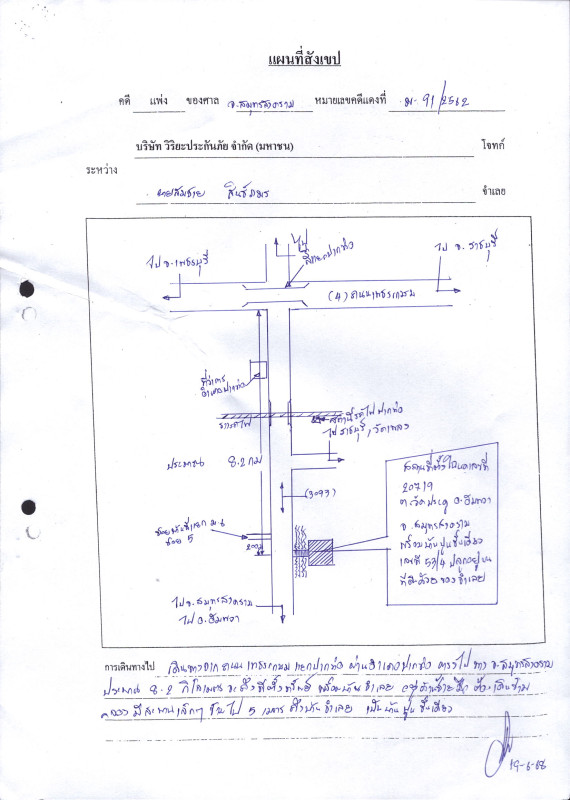 แผนที่สังเขป
คดี แพ่ง ของศาล จ.สมุทรสงคราม หมายเลขคดีแดงที่ ม. 91/2562
บริษัท วิริยะประกันภัย จำกัด (มหาชน) โจทก์
ระหว่าง
นายสมชาย จำเลย
ไป
สี่แยกปากท่อ
ไป จ.เพชรบุรี
ไป จ. ราชบุรี
(4) ถนนเพชรเกษม
ที่ว่าการ
อำเภอปากท่อ
ทางรถไฟ
สถานีรถไฟปากท่อ
ไป ราชบุรี, วัดเพลง
ประมาณ 8.2 กม
(3093)
สถานที่ตั้ง โฉนดเลขที่
20719
ต.วัดประดู่ อ.อัมพวา
จ.สมุทรสงคราม
พร้อมบ้านปูนชั้นเดียว
เลขที่ 53/4 ปลูกอยู่บน
ที่ดินด้วย ของจำเลย
ม.6
ซอย 5
200ม
ไป จ.สมุทรสงคราม
ไป อ.อัมพวา
การเดินทางไป เดินทางจากถนนเพชรเกษม แยกปากท่อ ผ่านอำเภอปากท่อ ตรงไปทาง จ.สมุทรสงคราม
ประมาณ 8.2 กิโลเมตร จะถึงที่ตั้งทรัพย์ พร้อมบ้านจำเลย อยู่ด้านซ้ายมือ ต้องเดินข้าม
คลอง มีสะพานเล็กๆ ข้ามไป 5 เมตร ถึงบ้านจำเลย เป็นบ้านปูนชั้นเดียว
19-6-68